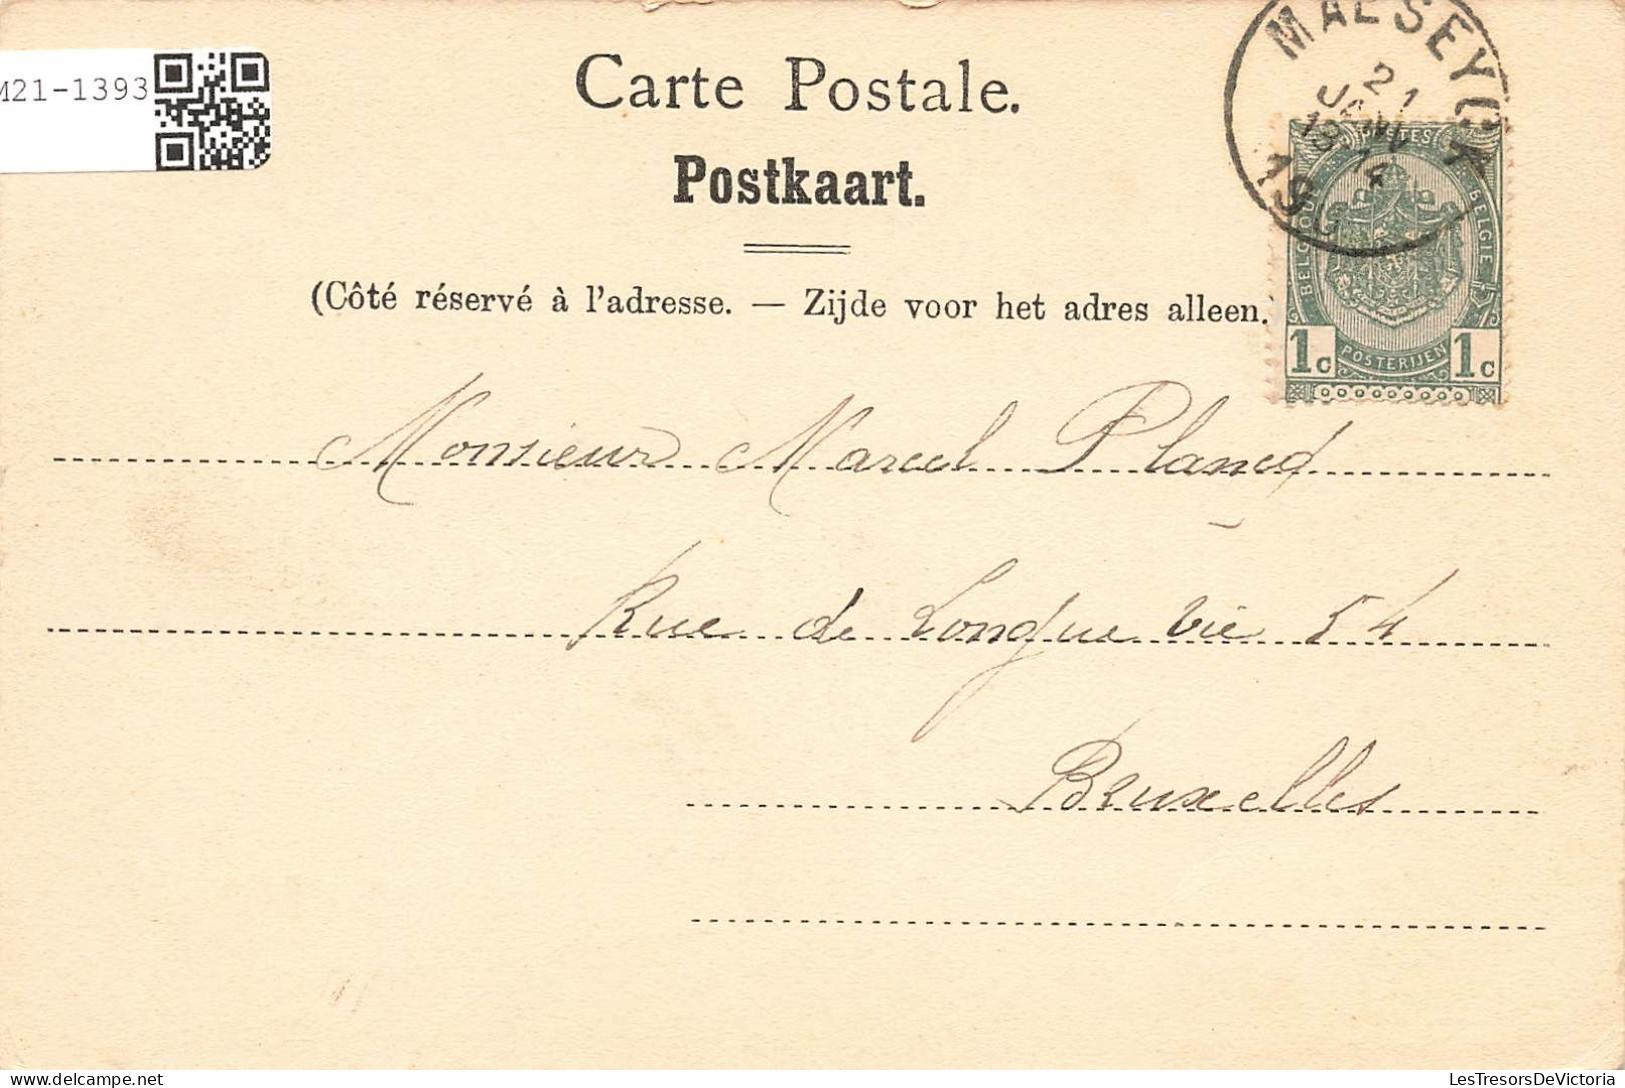 M21-1393
Carte Postale.
Postkaart.
(Côté réservé à l'adresse. — Zijde voor het adres alleen.
MAESEYCK
21
JANV
POSTES
BELGIQUE
BELGIE
POSTERIJEN
1c 1c
Monsieur Marcel
Rue de Longue vie 54
Bruxelles
LesTresorsDeVictoria